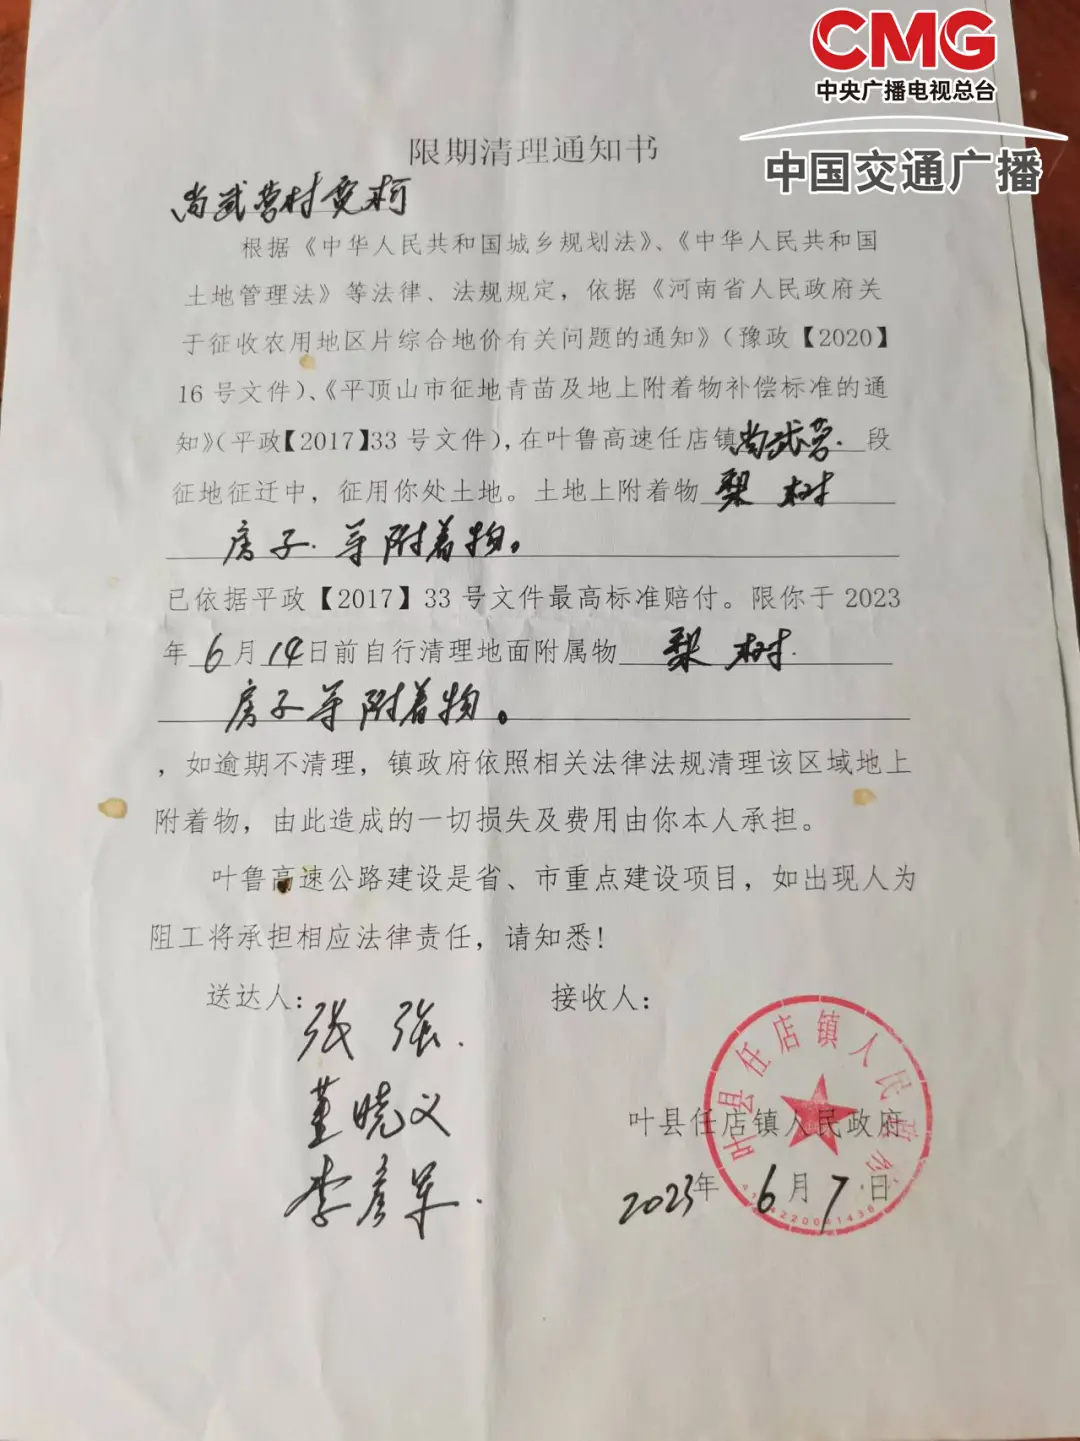 CMG
中央广播电视总台
中国交通广播
限期清理通知书
尚武营村 柯
根据《中华人民共和国城乡规划法》、《中华人民共和国
土地管理法》等法律、法规规定，依据《河南省人民政府关
于征收农用地区片综合地价有关问题的通知》（豫政【2020】
16号文件）、《平顶山市征地青苗及地上附着物补偿标准的通
知》（平政【2017】33号文件），在叶鲁高速任店镇尚武营.段
征地征迁中，征用你处土地。土地上附着物 梨 树
房子.等附着物。
已依据平政【2017】33号文件最高标准赔付。限你于2023
年6月14日前自行清理地面附属物 梨 树.
房子等附着物。
，如逾期不清理，镇政府依照相关法律法规清理该区域地上
附着物，由此造成的一切损失及费用由你本人承担。
叶鲁高速公路建设是省、市重点建设项目，如出现人为
阻工将承担相应法律责任，请知悉！
送达人： 接收人：
张 强.
董晓义
李彦军.
叶县任店镇人民政府
叶县任店镇人民政府
2023年6月7.日